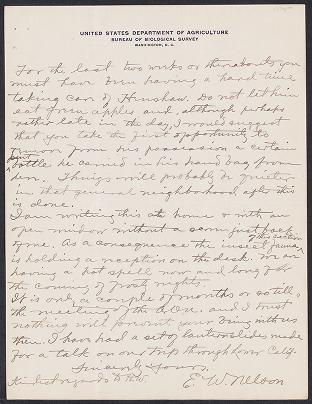 UNITED STATES DEPARTMENT OF AGRICULTURE
BUREAU OF BIOLOGICAL SURVEY
WASHINGTON, D. C.
For the last two weeks or thereabouts you
must have been having a hard time
taking care of Henshaw. Do not let him
eat green apples and, although perhaps
rather late in the day, would suggest
that you take the first opportunity to
remove from his possession a certain
bottle he carried in his hand bag from
here. Things will probably be quieter
in that general neighborhood after this
is done.
I am writing this at home & with an
open window without a screen just back
of me. As a consequence the insect fauna of this section
is holding a reception on the desk. We are
having a hot spell now and long for
the coming of frosty nights.
It is only a couple of months or so till
the meeting of the A.O.U. and I trust
nothing will prevent your being with us
then. I have had a set of lantern slides made
for a talk on our trip through Lower Calif.
Sincerely yours,
Kindest regards to
E. W. Nelson